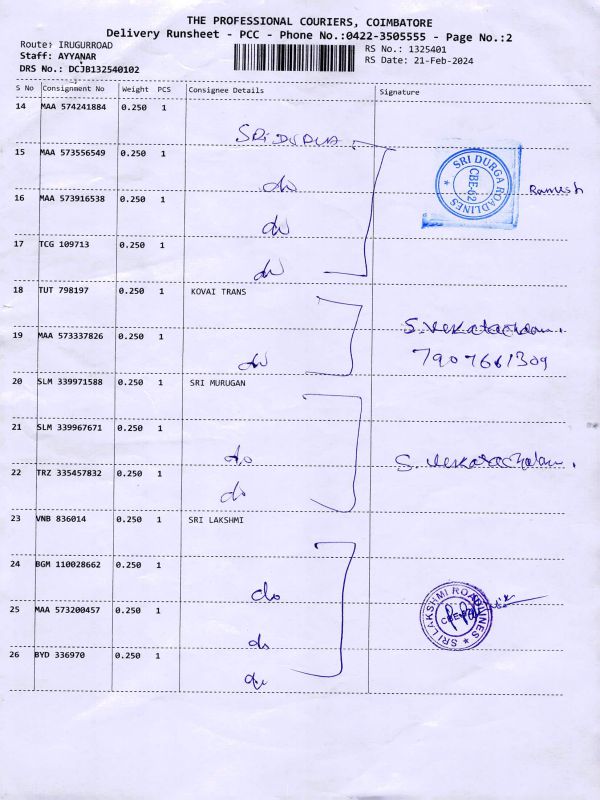 THE PROFESSIONAL COURIERS, COIMBATORE
Delivery Runsheet - PCC - Phone No.:0422-3505555 - Page No.:2
Route: IRUGURROAD
RS No.: 1325401
Staff: AYYANAR
RS Date: 21-Feb-2024
DRS No.: DCJB132540102
S No Consignment No Weight PCS Consignee Details Signature
14 MAA 574241884 0.250 1
SRI DURGA
15 MAA 573556549 0.250 1
do
SRI DURGA ROADLINES
CBE-62
Ramesh
16 MAA 573916538 0.250 1
do
17 TCG 109713 0.250 1
do
18 TUT 798197 0.250 1 KOVAI TRANS
S. Venkatachalam.
19 MAA 573337826 0.250 1
do
7907661309
20 SLM 339971588 0.250 1 SRI MURUGAN
21 SLM 339967671 0.250 1
do
S. Venkatachalam.
22 TRZ 335457832 0.250 1
do
23 VNB 836014 0.250 1 SRI LAKSHMI
24 BGM 110028662 0.250 1
do
25 MAA 573200457 0.250 1
SRI LAKSHMI ROADLINES
do
26 BYD 336970 0.250 1
do